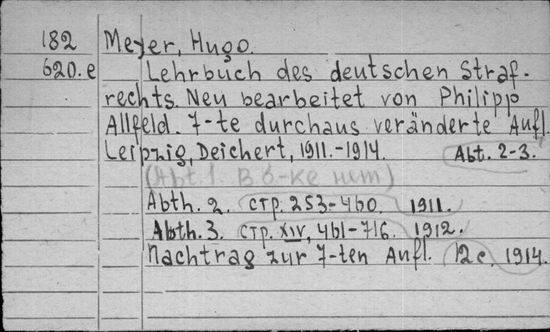 182 Meyer, Hugo.
620.e Lehrbuch des deutschen Straf-
rechts. Neu bearbeitet von Philipp
Allfeld. 7-te durchaus veränderte Aufl.
Leipzig, Deichert, 1911.-1914. Abt. 2-3.
(Abt. 1. В б-ке нет)
Abth. 2. стр. 253-460. 1911.
Abth. 3. стр. XIV, 461-716. 1912.
Nachtrag zur 7-ten Aufl. 12 с. 1914.